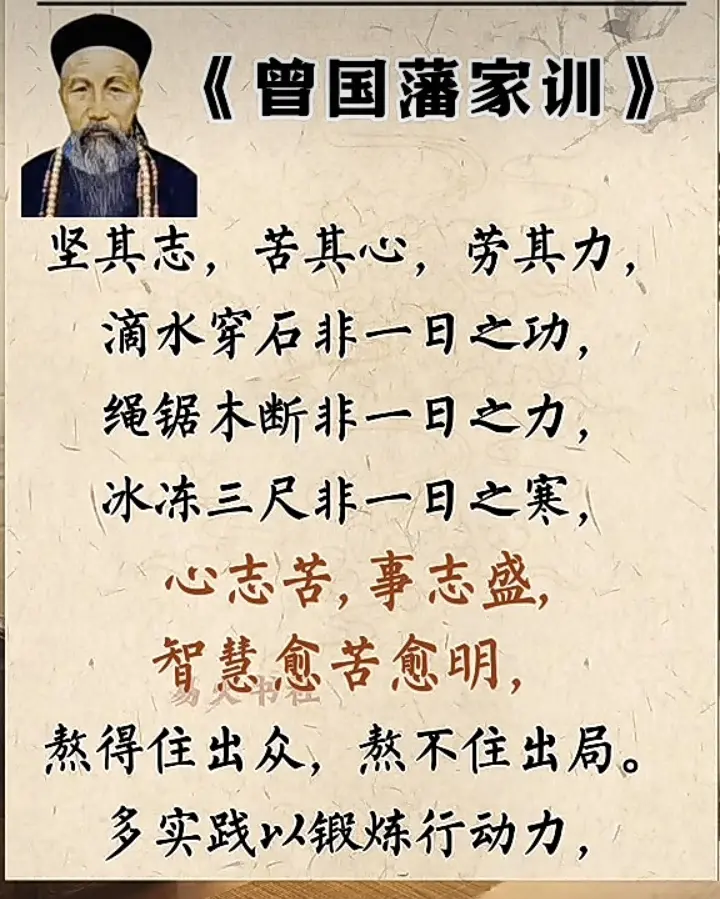 《曾国藩家训》
坚其志，苦其心，劳其力，
滴水穿石非一日之功，
绳锯木断非一日之力，
冰冻三尺非一日之寒，
心志苦，事志盛，
智慧愈苦愈明，
熬得住出众，熬不住出局。
多实践以锻炼行动力，